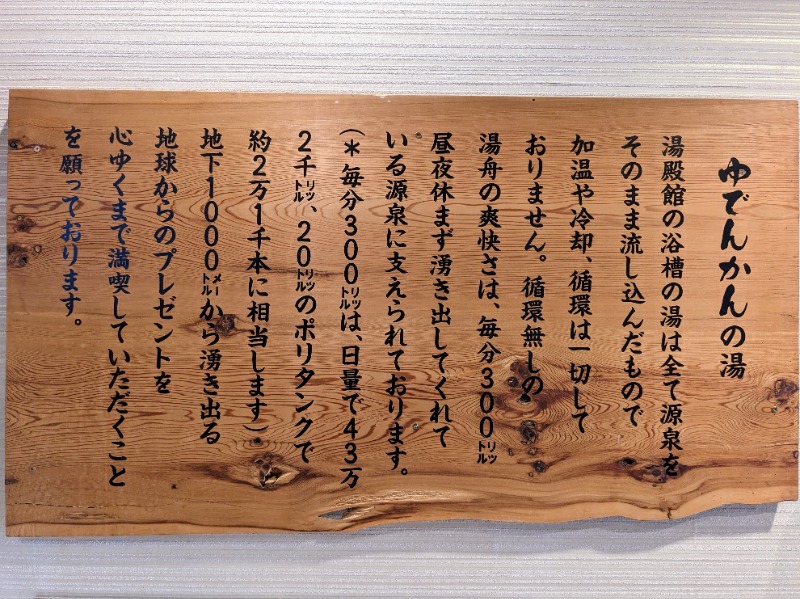 ゆでんかんの湯
湯殿館の浴槽の湯は全て源泉を
そのまま流し込んだもので
加温や冷却、循環は一切して
おりません。循環無しの
湯舟の爽快さは、毎分300㍑
昼夜休まず湧き出してくれて
いる源泉に支えられております。
(*毎分300㍑は、日量で43万
2千㍑、20㍑のポリタンクで
約2万1千本に相当します)
地下1000㍍から湧き出る
地球からのプレゼントを
心ゆくまで満喫していただくこと
を願っております。